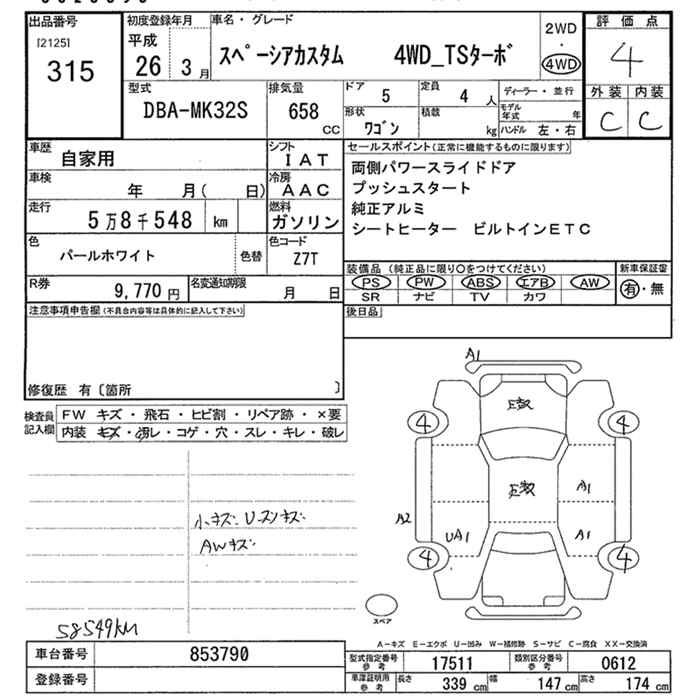 出品番号
[2125]
315
初度登録年月
平成
26 3月
車名・グレード
スペーシアカスタム 4WD_TSターボ
2WD
・
4WD
評価点
4
外装 内装
C C
型式
DBA-MK32S
排気量
658
CC
ドア
5
定員
4人
形状
ワゴン
積載
kg
ディーラー・並行
モデル年式 年
ハンドル 左・右
車歴
自家用
シフト
IAT
車検
年 月( 日)
冷房
AAC
走行
5万8千548 km
燃料
ガソリン
色
パールホワイト
色替
色コード
Z7T
R券
9,770円
名変通知期限
月 日
セールスポイント(正常に機能するものに限ります)
両側パワースライドドア
プッシュスタート
純正アルミ
シートヒーター ビルトインETC
装備品(純正品に限り○をつけてください)
PS PW ABS エアB AW
SR ナビ TV カワ
新車保証書
有・無
後日品
注意事項申告欄(不具合内容等は具体的に記入して下さい)
修復歴 有〔箇所 〕
検査員記入欄
FW キズ・飛石・ヒビ割・リペア跡・×要
内装 キズ・汚レ・コゲ・穴・スレ・キレ・破レ
小キズ、Uスンキズ
AWキズ
58549KM
A1
E数
4
4
E数
A1
A2
UA1
A1
4
4
スペア
A-キズ E-エクボ U-凹み W-補修跡 S-サビ C-腐食 XX-交換済
車台番号
853790
登録番号
型式指定番号
参考
17511
類別区分番号
参考
0612
車庫証明用
参考
長さ
339cm
幅
147cm
高さ
174cm